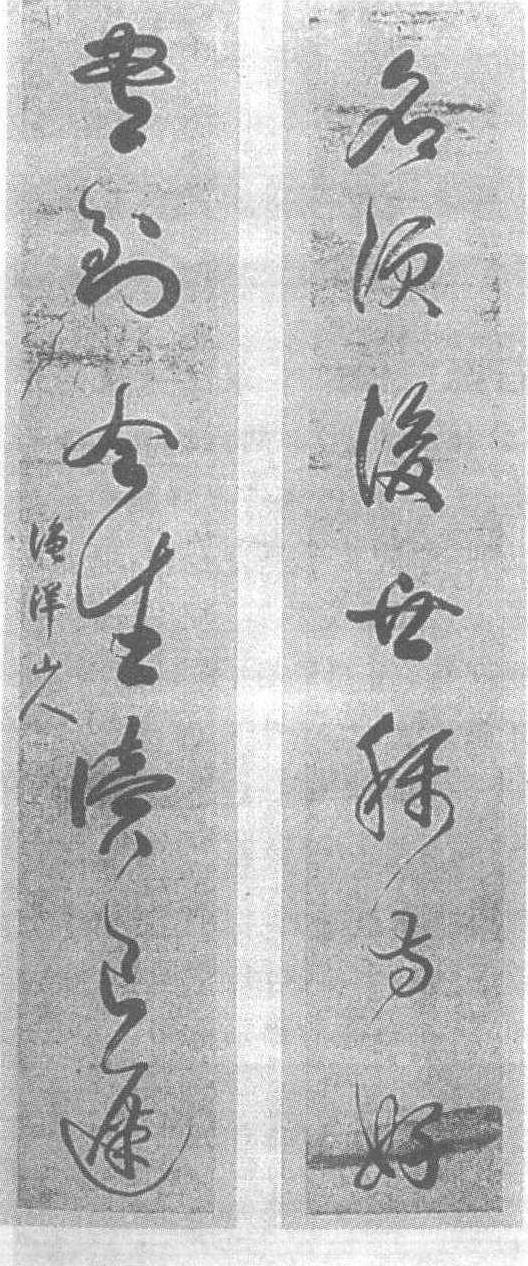 名須後世稱方好
書到今生讀已遲
漁洋山人